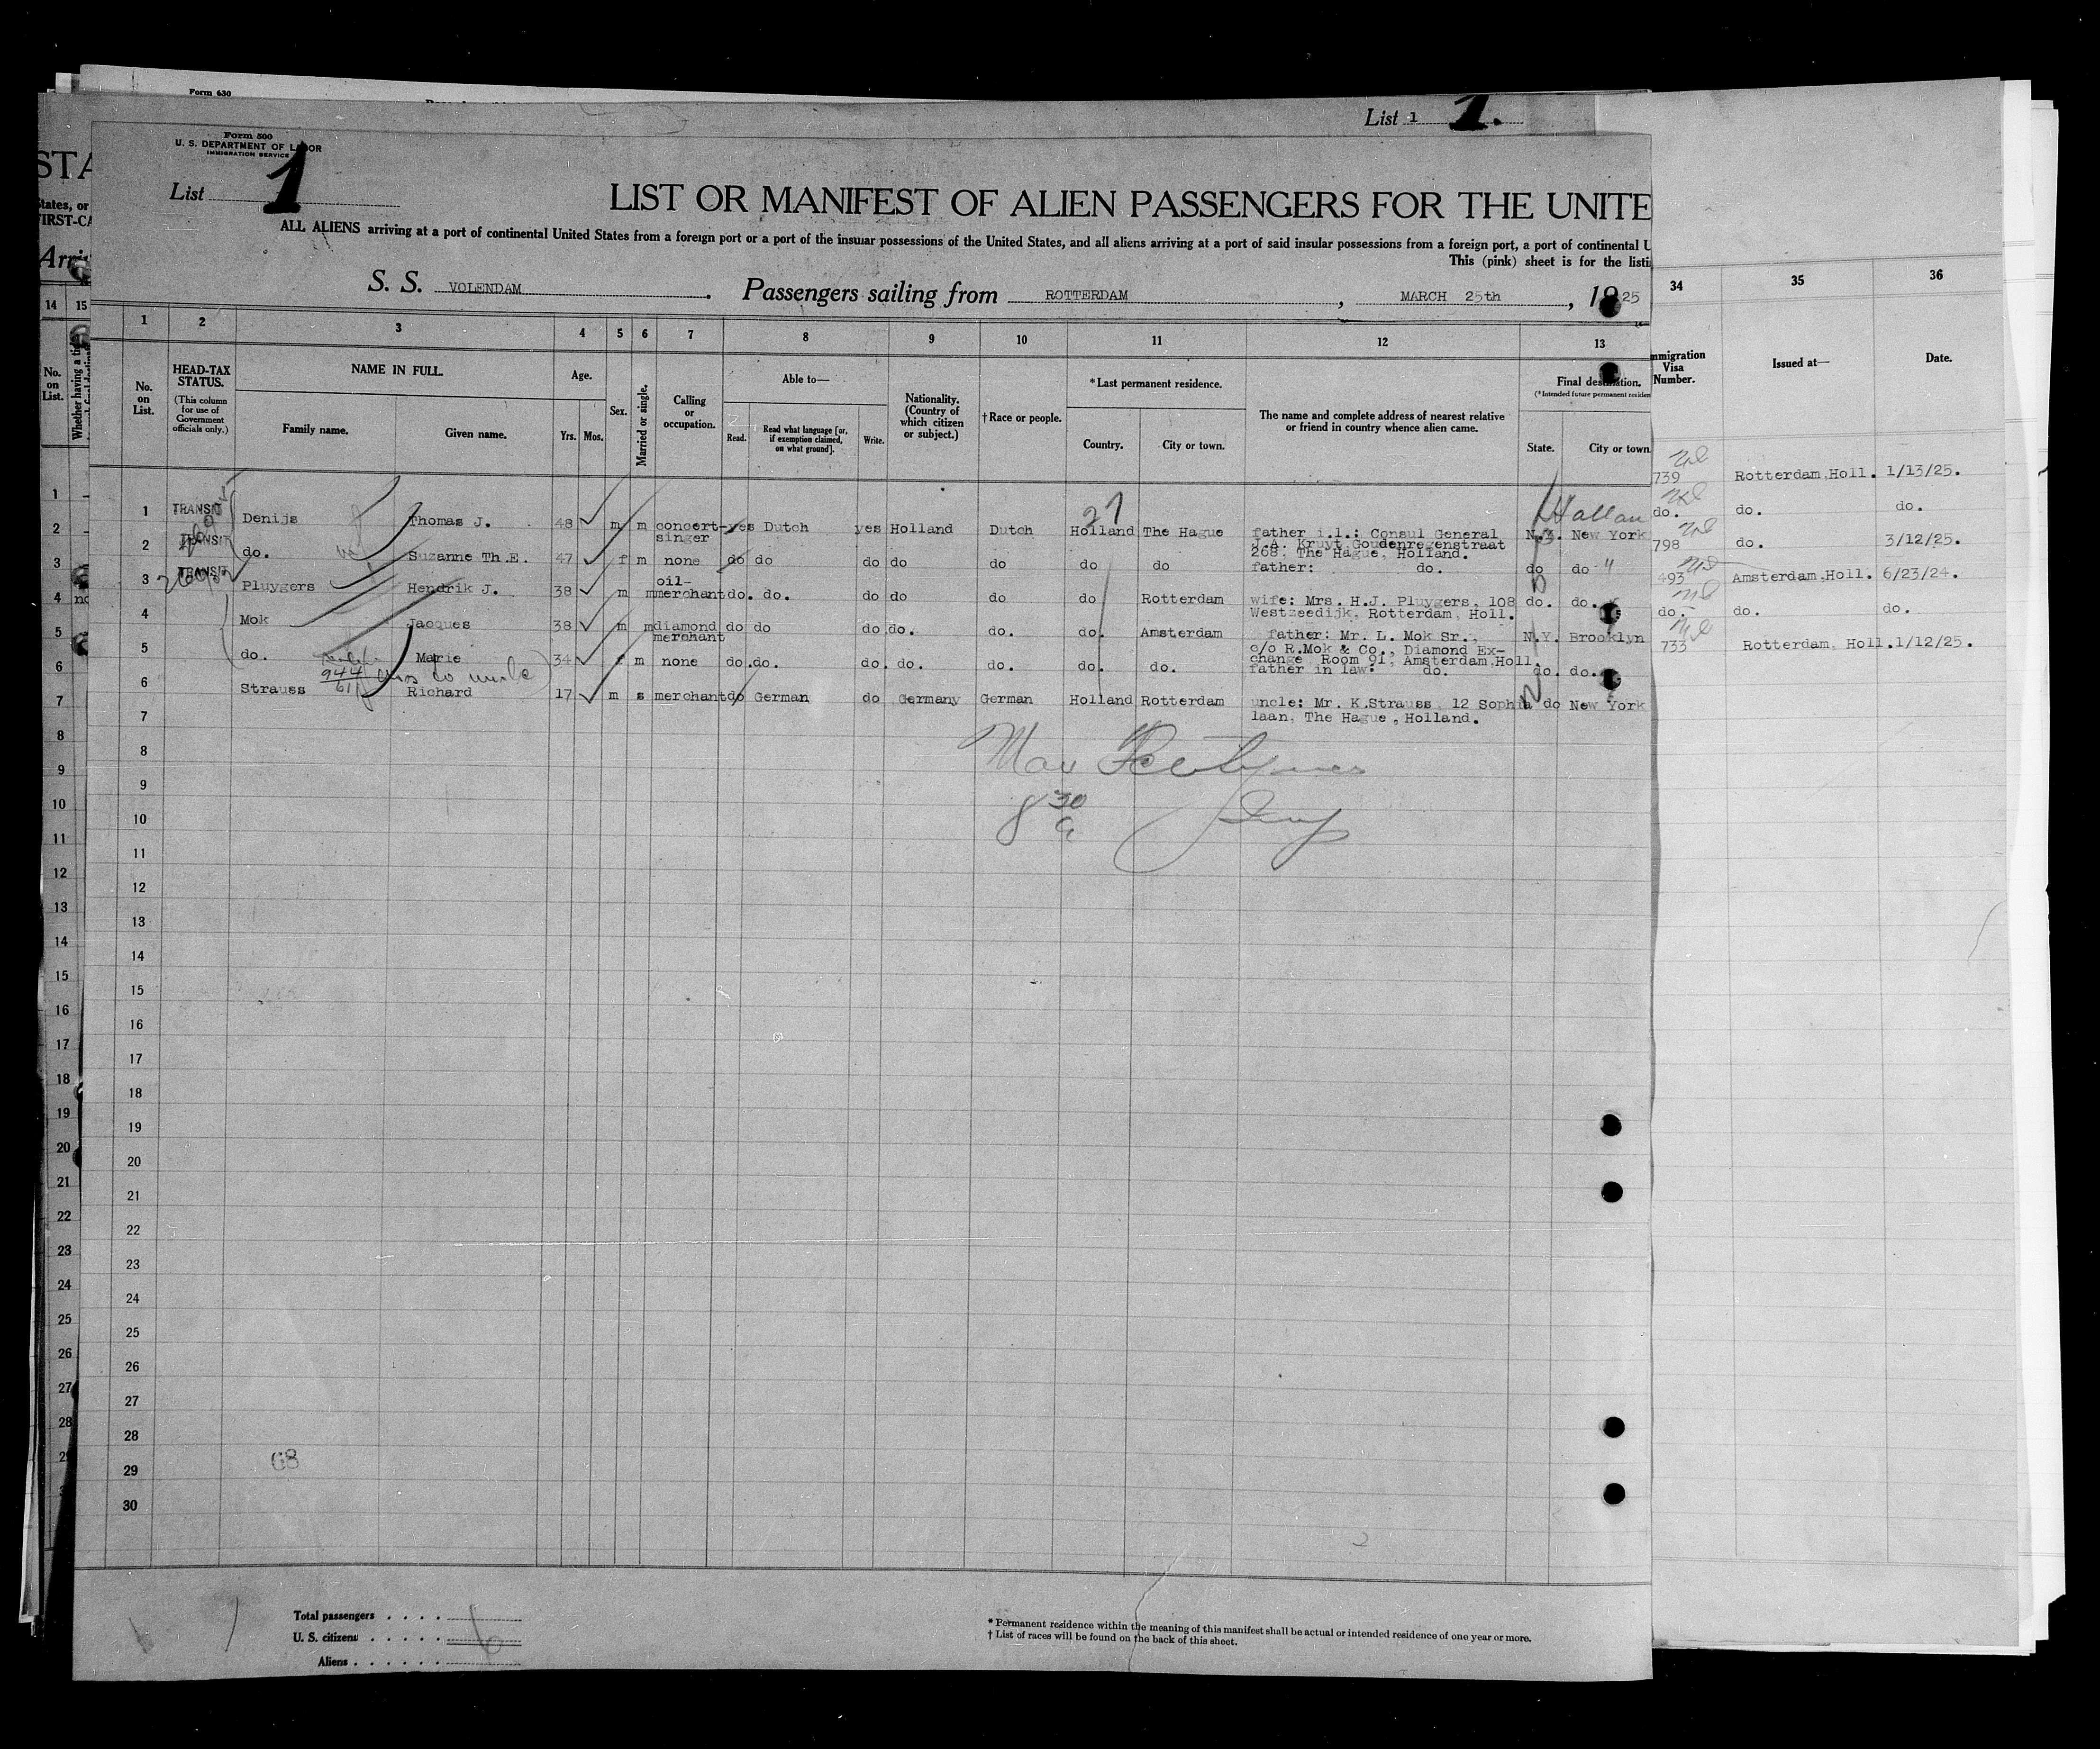 Form 630
List 1 1.
Form 500
U. S. DEPARTMENT OF LABOR
IMMIGRATION SERVICE
List 1
STA
LIST OR MANIFEST OF ALIEN PASSENGERS FOR THE UNITE
States, or
FIRST-CA
ALL ALIENS arriving at a port of continental United States from a foreign port or a port of the insular possessions of the United States, and all aliens arriving at a port of said insular possessions from a foreign port, a port of continental U
This (pink) sheet is for the listi
Arri
S. S. VOLENDAM. Passengers sailing from ROTTERDAM, MARCH 25th, 1925
14 15 1 2 3 4 5 6 7 8 9 10 11 12 13 34 35 36
No. on List.
Whether having a ti
No. on List.
HEAD-TAX STATUS.
(This column for use of Government officials only.)
NAME IN FULL.
Family name. Given name.
Age.
Yrs. Mos.
Sex.
Married or single.
Calling or occupation.
Able to—
Read. Read what language [or, if exemption claimed, on what ground]. Write.
Nationality. (Country of which citizen or subject.)
† Race or people.
* Last permanent residence.
Country. City or town.
The name and complete address of nearest relative or friend in country whence alien came.
Final destination.
(* Intended future permanent residen
State. City or town
mmigration Visa Number.
Issued at—
Date.
1 TRANSIT Denijs Thomas J. 48 m m concert-singer yes Dutch yes Holland Dutch Holland The Hague father i.l.: Consul General N.Y. New York 739 Rotterdam, Holl. 1/13/25.
J.A. Kruyt Goudenregenstraat
268, The Hague, Holland.
2 TRANSIT do. Suzanne Th.E. 47 f m none do do do do do do do father: do. do do " do. do. do.
3 TRANSIT Pluygers Hendrik J. 38 m m oil-merchant do. do. do do do do Rotterdam wife: Mrs. H.J. Pluygers, 108 do. do. 798 do. 3/12/25.
Westzeedijk, Rotterdam, Holl.
4 Mok Jacques 38 m m diamond merchant do do do do. do. do. Amsterdam father: Mr. L. Mok Sr., N.Y. Brooklyn 493 Amsterdam, Holl. 6/23/24.
c/o R.Mok & Co., Diamond Ex-
change Room 91, Amsterdam, Holl.
5 do. Marie 34 f m none do. do. do. do. do. do. do. father in law: do. do. do. do. do. do.
944
61
6 Strauss Richard 17 m s merchant do German do Germany German Holland Rotterdam uncle: Mr. K.Strauss, 12 Sophia do New York 733 Rotterdam, Holl. 1/12/25.
laan, The Hague, Holland.
27
7
8
9
10
11
12
13
14
15
16
17
18
19
20
21
22
23
24
25
26
27
28
29
30
8 30
68
Total passengers . . . .
U. S. citizens . . . . .
Aliens . . . . . .
* Permanent residence within the meaning of this manifest shall be actual or intended residence of one year or more.
† List of races will be found on the back of this sheet.